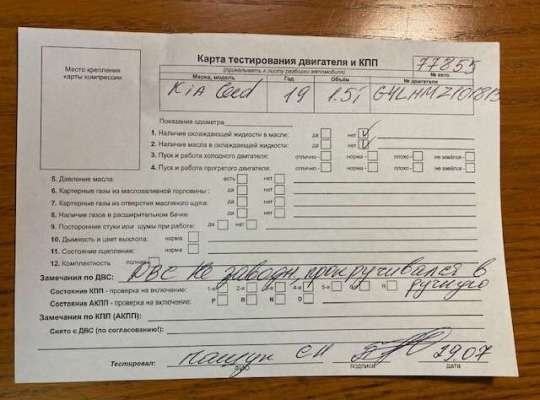 Место крепления
карты компрессии
Карта тестирования двигателя и КПП
(прикалывать к листу разборки автомобиля)
77855
№ авто
Марка, модель Год Объём № двигателя
KIA Ceed 19 1.5i G4LHMZ
Показания одометра
1. Наличие охлаждающей жидкости в масле: да нет
2. Наличие масла в охлаждающей жидкости: да нет
3. Пуск и работа холодного двигателя: отлично норма плохо не завёлся
4. Пуск и работа прогретого двигателя: отлично норма плохо не завёлся
5. Давление масла: есть нет
6. Картерные газы из маслозаливной горловины: да нет
7. Картерные газы из отверстия масляного щупа: да нет
8. Наличие газов в расширительном бачке: да нет
9. Посторонние стуки или шумы при работе: да нет
10. Дымность и цвет выхлопа: норма
11. Состояние сцепления: норма
12. Комплектность полная
Замечания по ДВС: ДВС не заводн, прокручивался в
ручную
Состояние КПП - проверка на включение: 1-я 4-я 5-я R
Состояние АКПП - проверка на включение: P R N D
Замечания по КПП (АКПП):
Снято с ДВС (по согласованию!):
Тестировал: 29.07
ФИО подпись дата